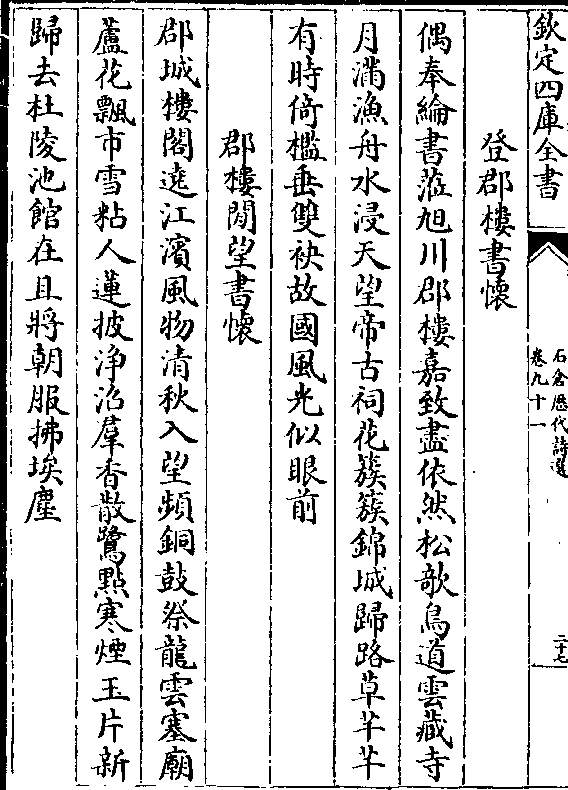 欽定四庫全書
石倉歷代詩選
卷九十一
二十七
登郡樓書懷
偶奉綸書蒞旭川郡樓嘉致盡依然松欹鳥道雲藏寺
月滿漁舟水浸天望帝古祠花簇簇錦城歸路草芊芊
有時倚檻垂雙袂故國風光似眼前
郡樓閒望書懷
郡城樓閣遶江濱風物清秋入望頻銅鼓祭龍雲塞廟
蘆花飄市雪粘人蓮披淨沼羣香散鷺點寒煙玉片新
歸去杜陵池館在且將朝服拂埃塵